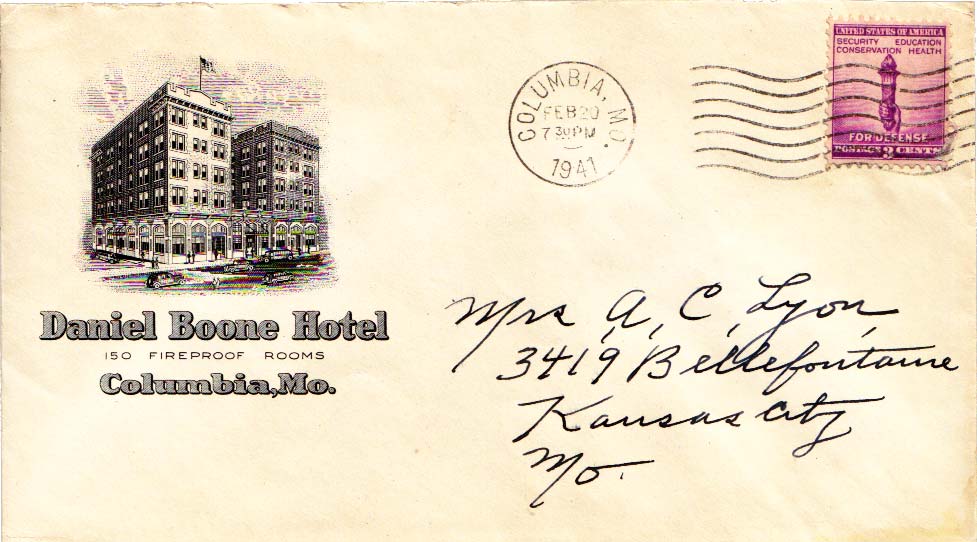 Daniel Boone Hotel
150 FIREPROOF ROOMS
Columbia, Mo.
COLUMBIA, MO.
FEB 20
7 30 PM
1941
UNITED STATES OF AMERICA
SECURITY EDUCATION
CONSERVATION HEALTH
FOR DEFENSE
POSTAGE 3 CENTS
Mrs A, C, Lyon,
3419 Bellefontaine
Kansas City
Mo.